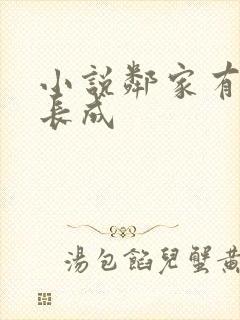 小說鄰家有
長成
湯包餡兒蟹黃